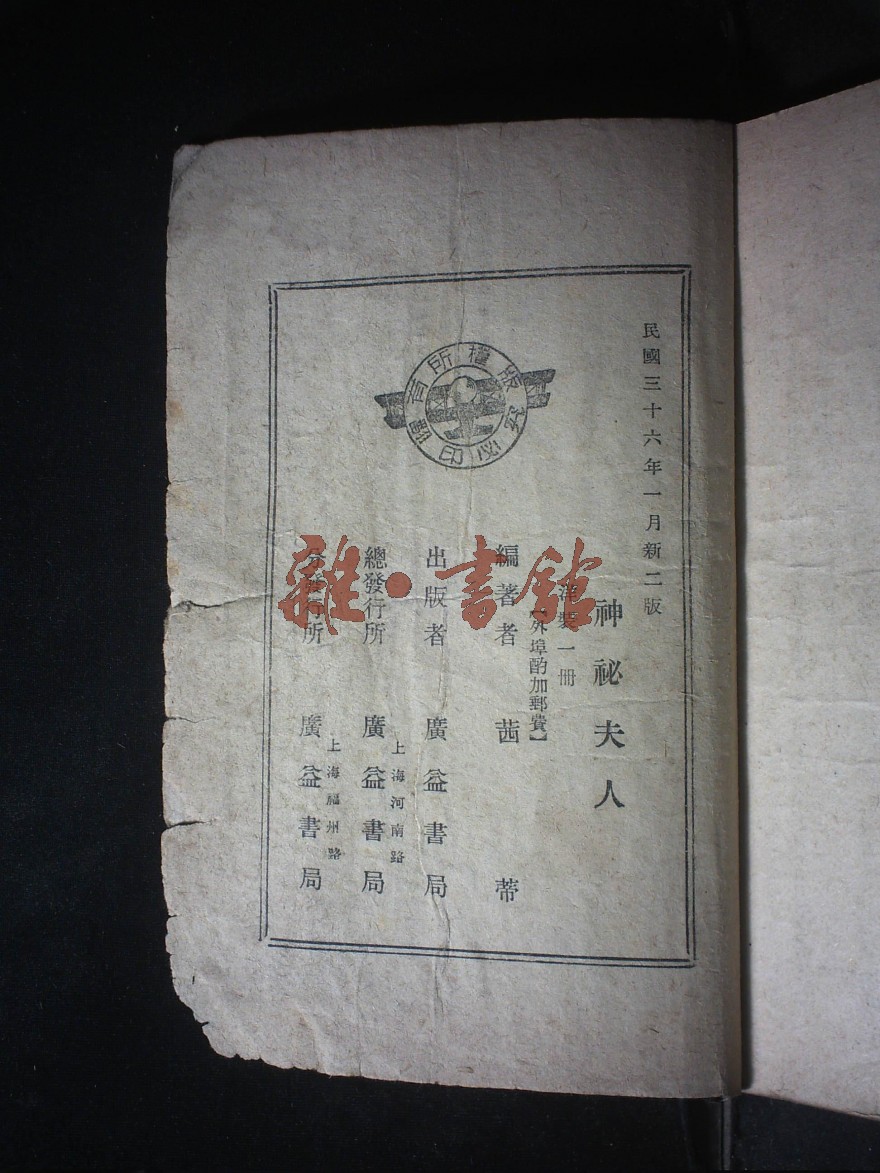 民國三十六年一月新二版
神祕夫人
洋裝一冊
【外埠酌加郵費】
編著者 茜蒂
出版者 廣益書局
總發行所 上海河南路 廣益書局
分發行所 上海福州路 廣益書局
版權所有
翻印必究
雜·書館